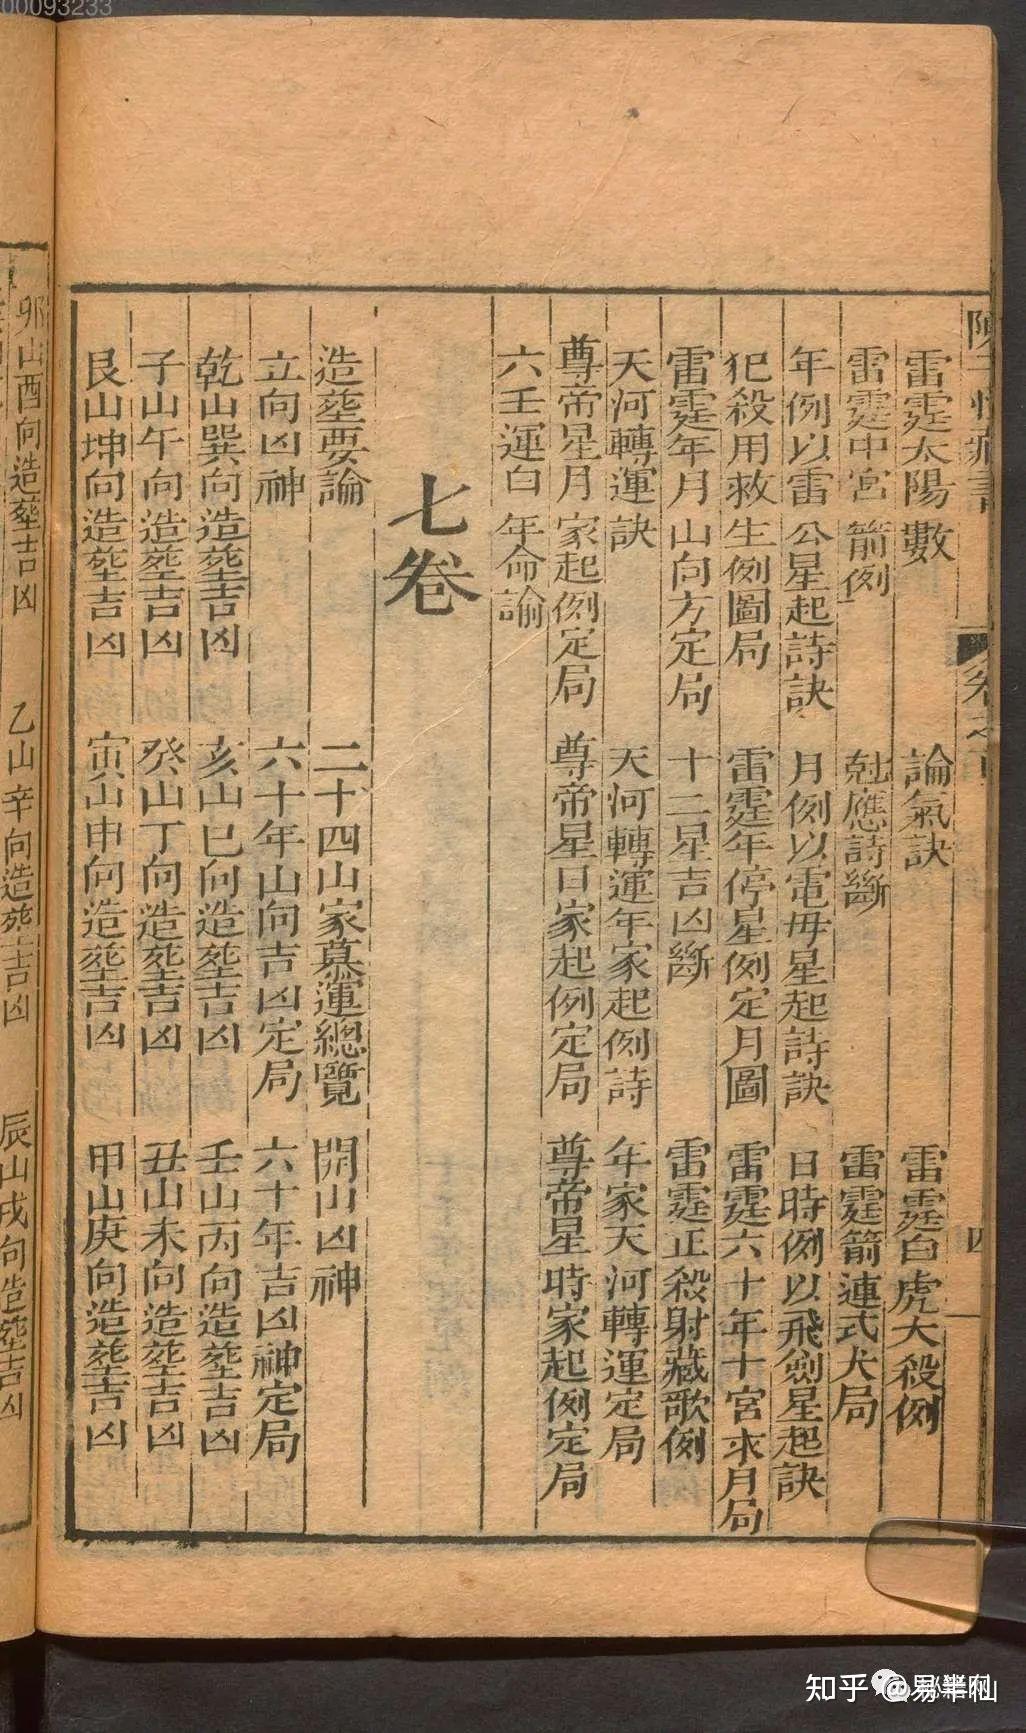 00093233
雷霆太陽數　論氣訣　雷霆白虎大殺例
雷霆中宮箭例　尅應詩斷　雷霆箭連式犬局
年例以雷公星起詩訣　月例以電毋星起詩訣　日時例以飛劍星起訣
犯殺用救生例圖局　雷霆年停星例定月圖　雷霆六十年十宮求月局
雷霆年月山向方定局　十二星吉凶斷　雷霆正殺射藏歌例
天河轉運訣　天河轉運年家起例詩　年家天河轉運定局
尊帝星月家起例定局　尊帝星日家起例定局　尊帝星時家起例定局
六壬運白年命論
七卷
造塟要論　二十四山家墓運總覽　開山凶神
立向凶神　六十年山向吉凶定局　六十年吉凶神定局
乾山巽向造塟吉凶　亥山巳向造塟吉凶　壬山丙向造塟吉凶
子山午向造塟吉凶　癸山丁向造塟吉凶　丑山未向造塟吉凶
艮山坤向造塟吉凶　寅山申向造塟吉凶　甲山庚向造塟吉凶
卯山酉向造塟吉凶　乙山辛向造塟吉凶　辰山戌向造塟吉凶
知乎